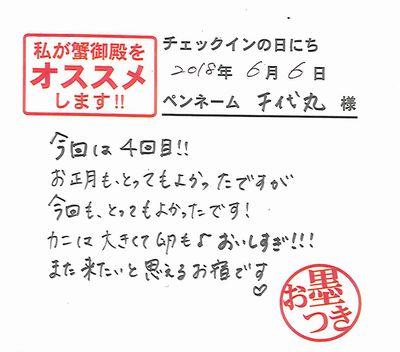 私が蟹御殿を
オススメ
します!!
チェックインの日にち
2018年 6月 6日
ペンネーム 千代丸 様
今回は4回目!!
お正月も、とってもよかったですが
今回も、とってもよかったです!
カニは大きくて卵も♪おいしすぎ!!!
また来たいと思えるお宿です♡
お墨つき